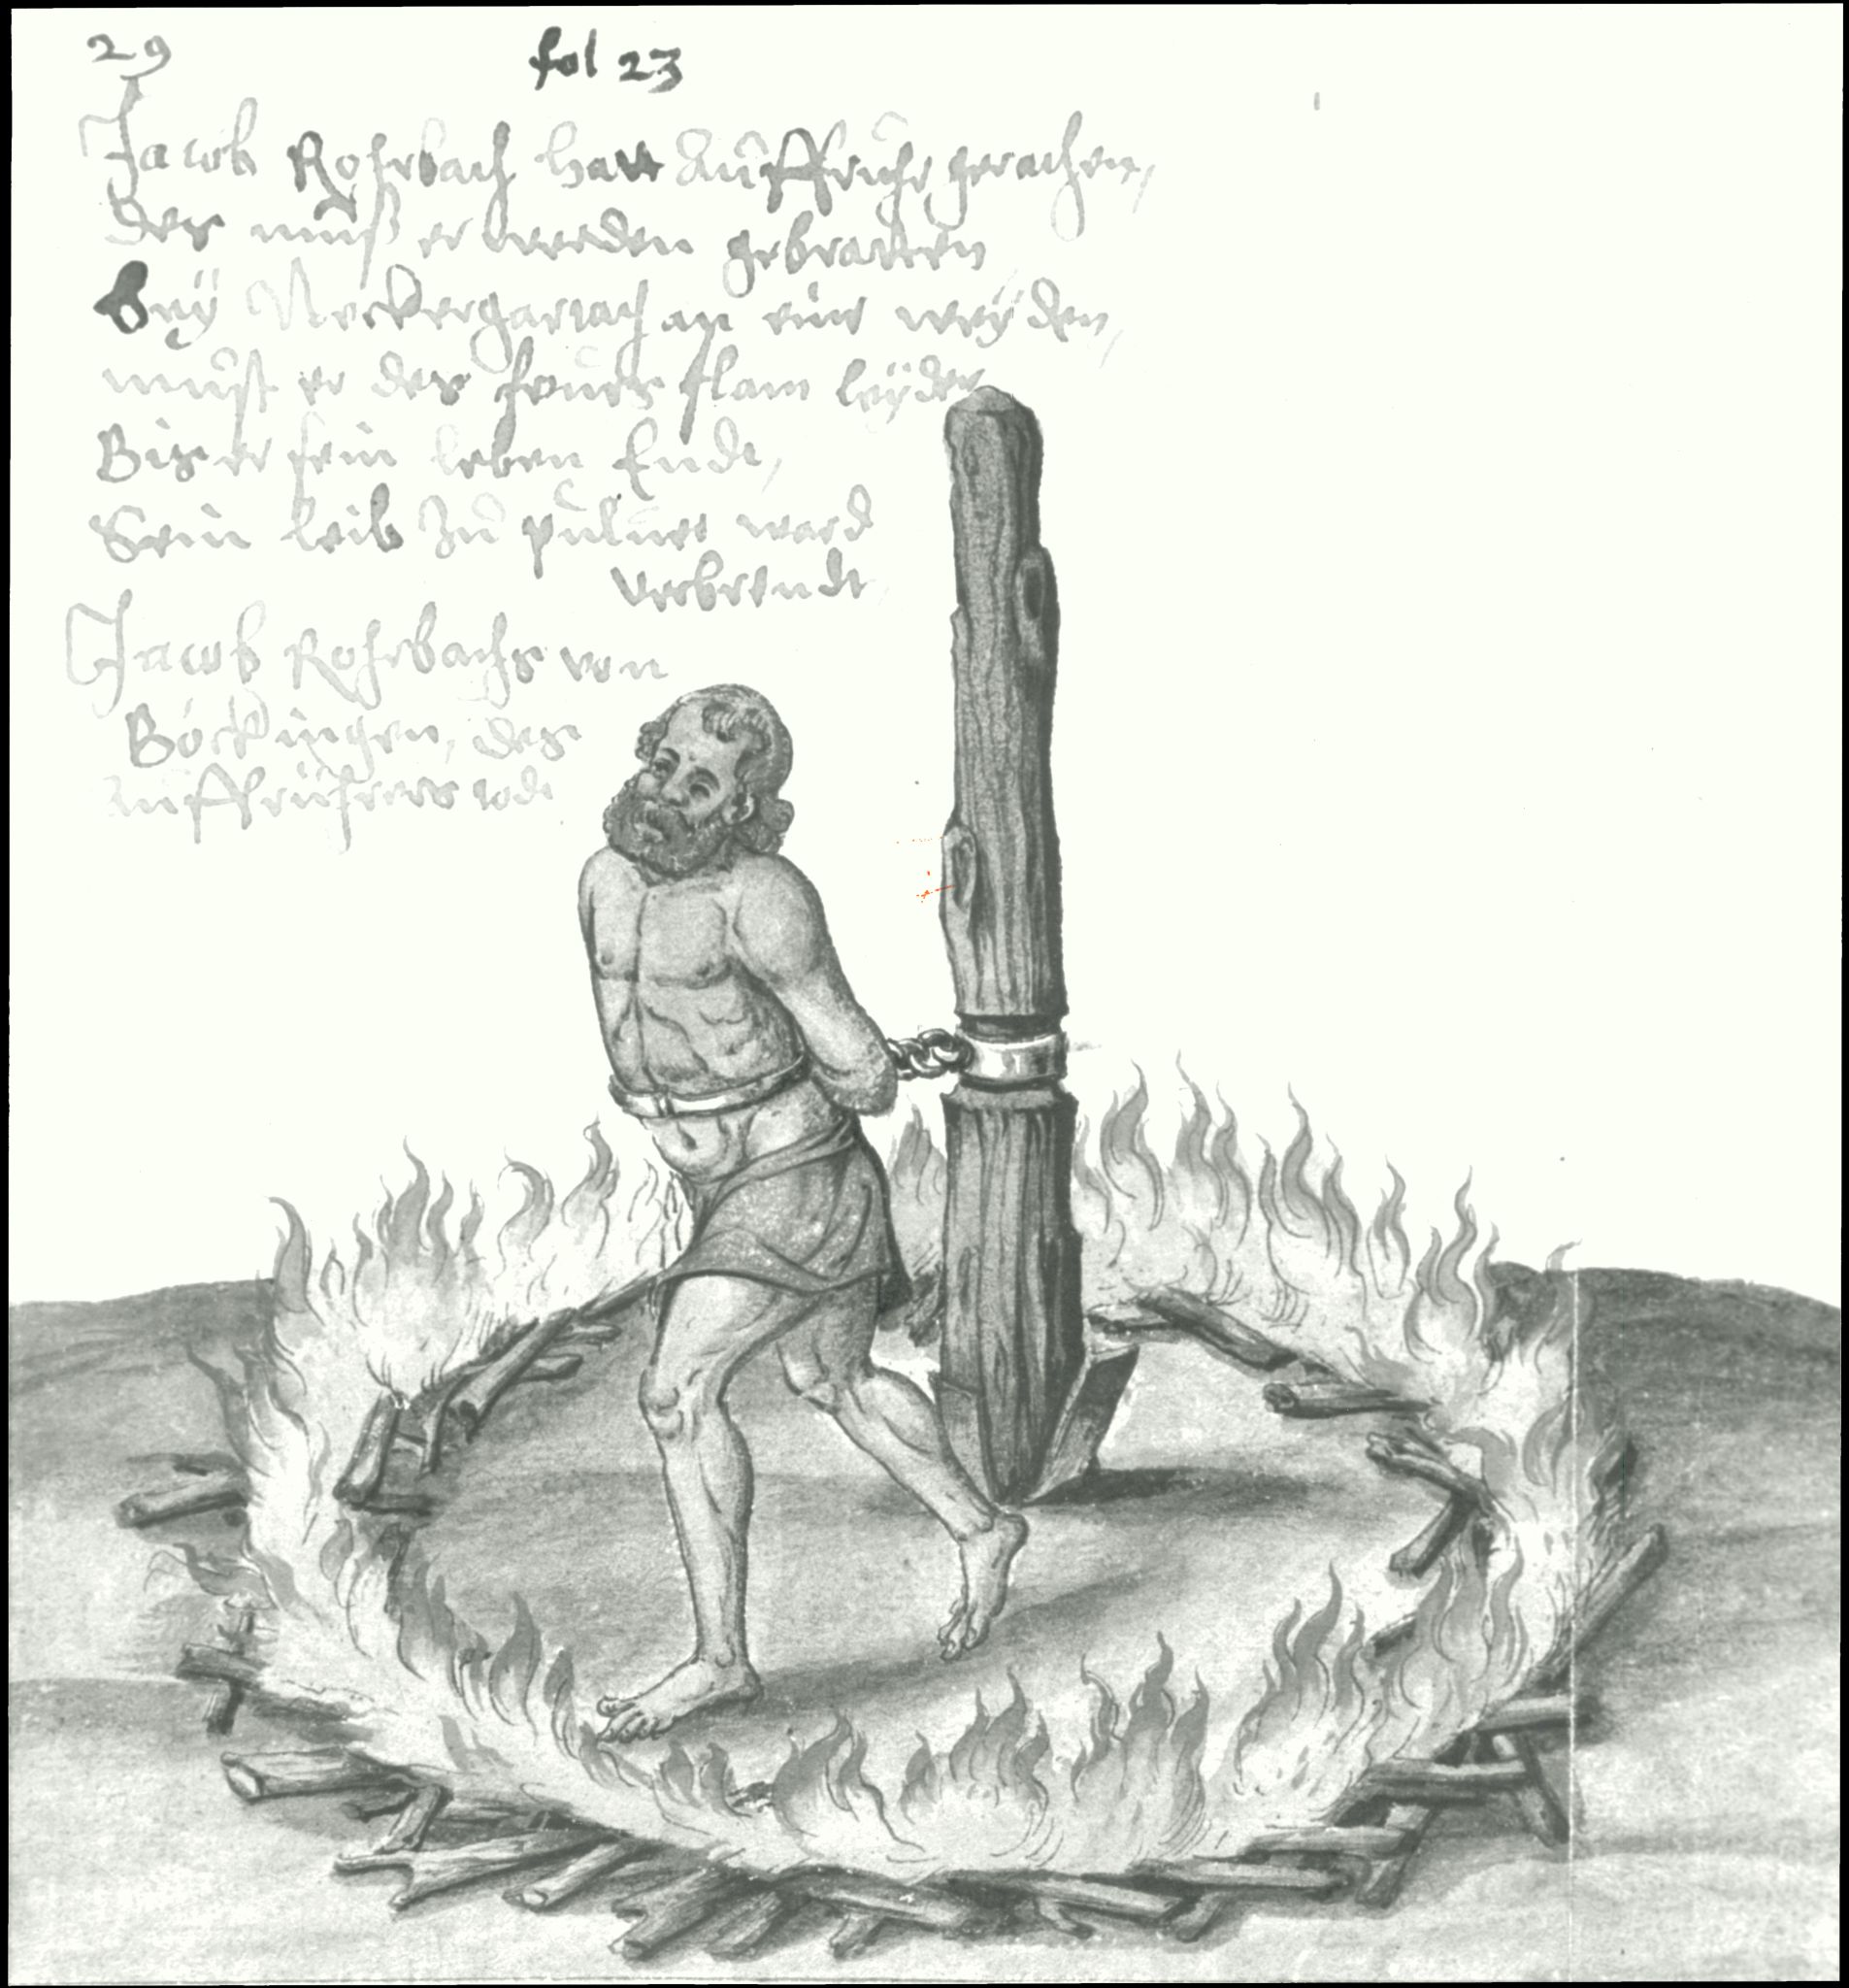 29
fol 23
Jacob Rohrbach hatt Auffruhr gerathen,
Des muß er werden gebratten
Bey Neckergartach an einr weÿden,
must er des feurs flam leÿden
Bis er sein leben Endt,
Sein leib zu puluer ward
verbrendt
Jacob Rohrbachs von
Böckingen, des
Auffrührers todt